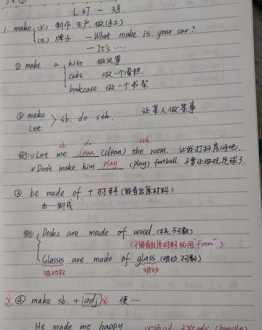 1. make (v) 制作 生产 做
(n) 牌子 — What make is your car?
— It's …
② make a kite 做风筝
cake 做一个蛋糕
bookcase 做一个书架
③ make
Let > sb do sth. 让某人做某事
例: Let me clean (clean) the room. 让我打扫房间吧.
Don't make him play (play) football.
③ be made of + 材料 (能看出原材料)
由…制成
例: Desks are made of wood.
(不能看出原材料的用 from)
Glasses are made of glass
④ make sb. + adj 使…
He made me happy